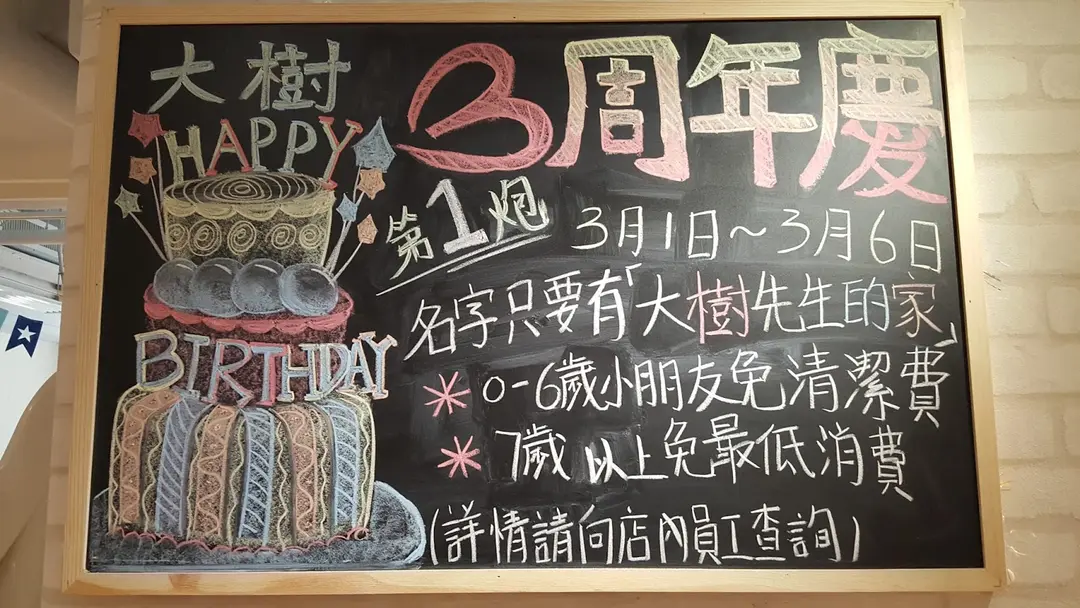 大樹
HAPPY
BIRTHDAY
3周年慶
第1炮
3月1日~3月6日
名字只要有「大樹先生的家」
* 0-6歲小朋友免清潔費
* 7歲以上免最低消費
(詳情請向店內員工查詢)